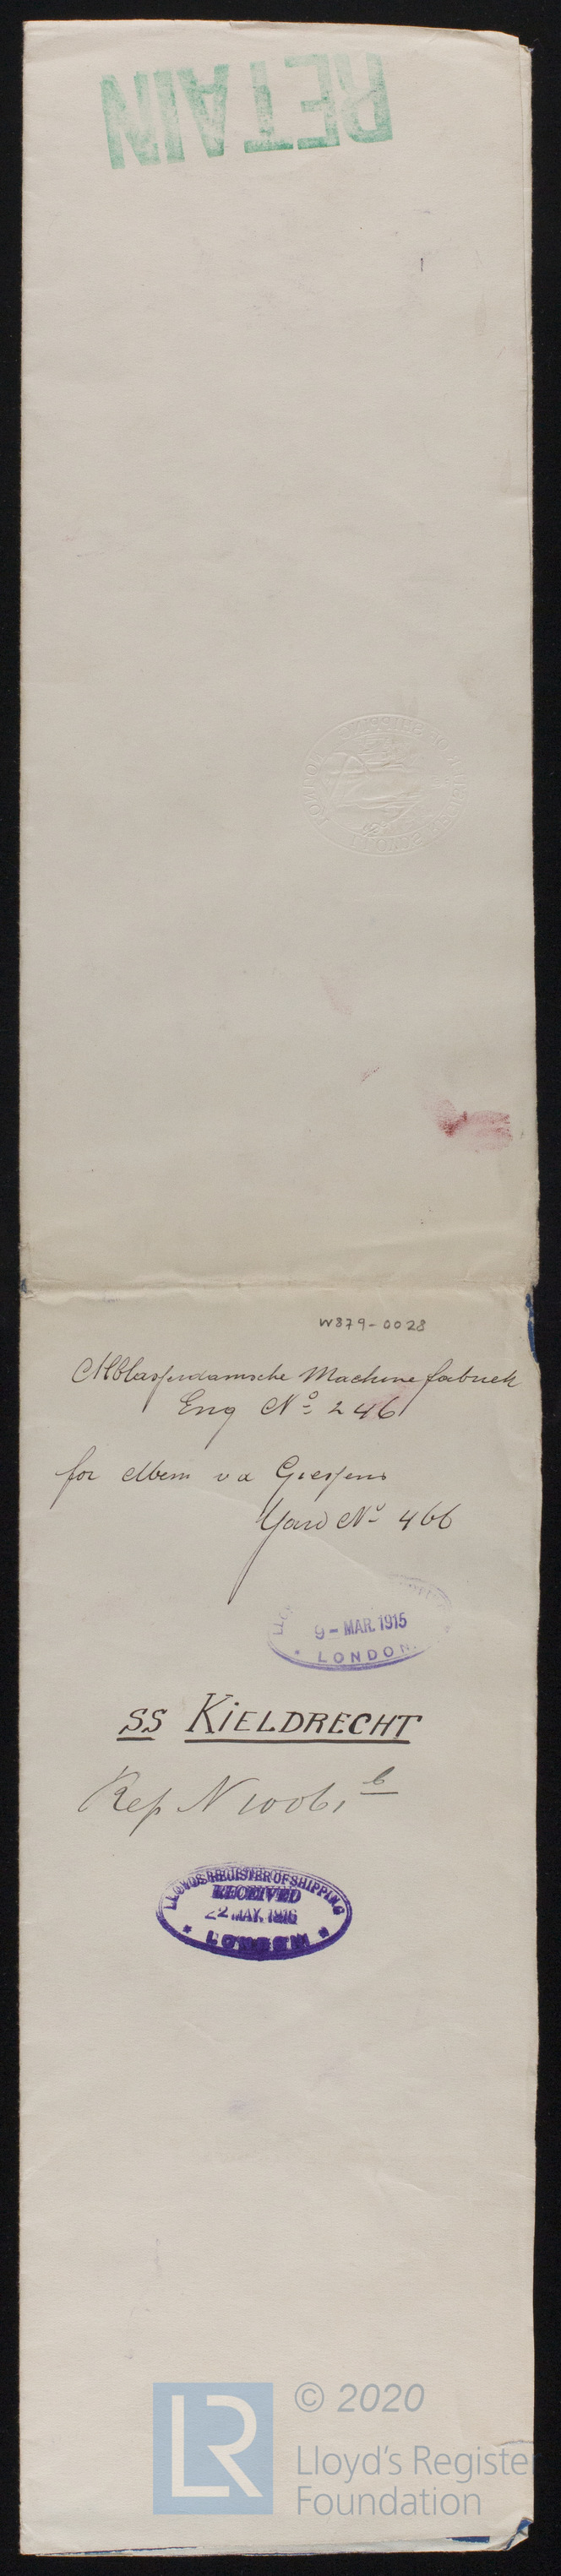 RETAIN
W879-0028
Alblasserdamsche Machinefabriek
Eng No 246
for Messrs v d Giessens
Yard No 466
9 - MAR. 1915
LONDON
SS KIELDRECHT
Rep N 10061 b
LLOYD'S REGISTER OF SHIPPING
RECEIVED
22 MAY. 1916
LONDON
© 2020
Lloyd's Register
Foundation